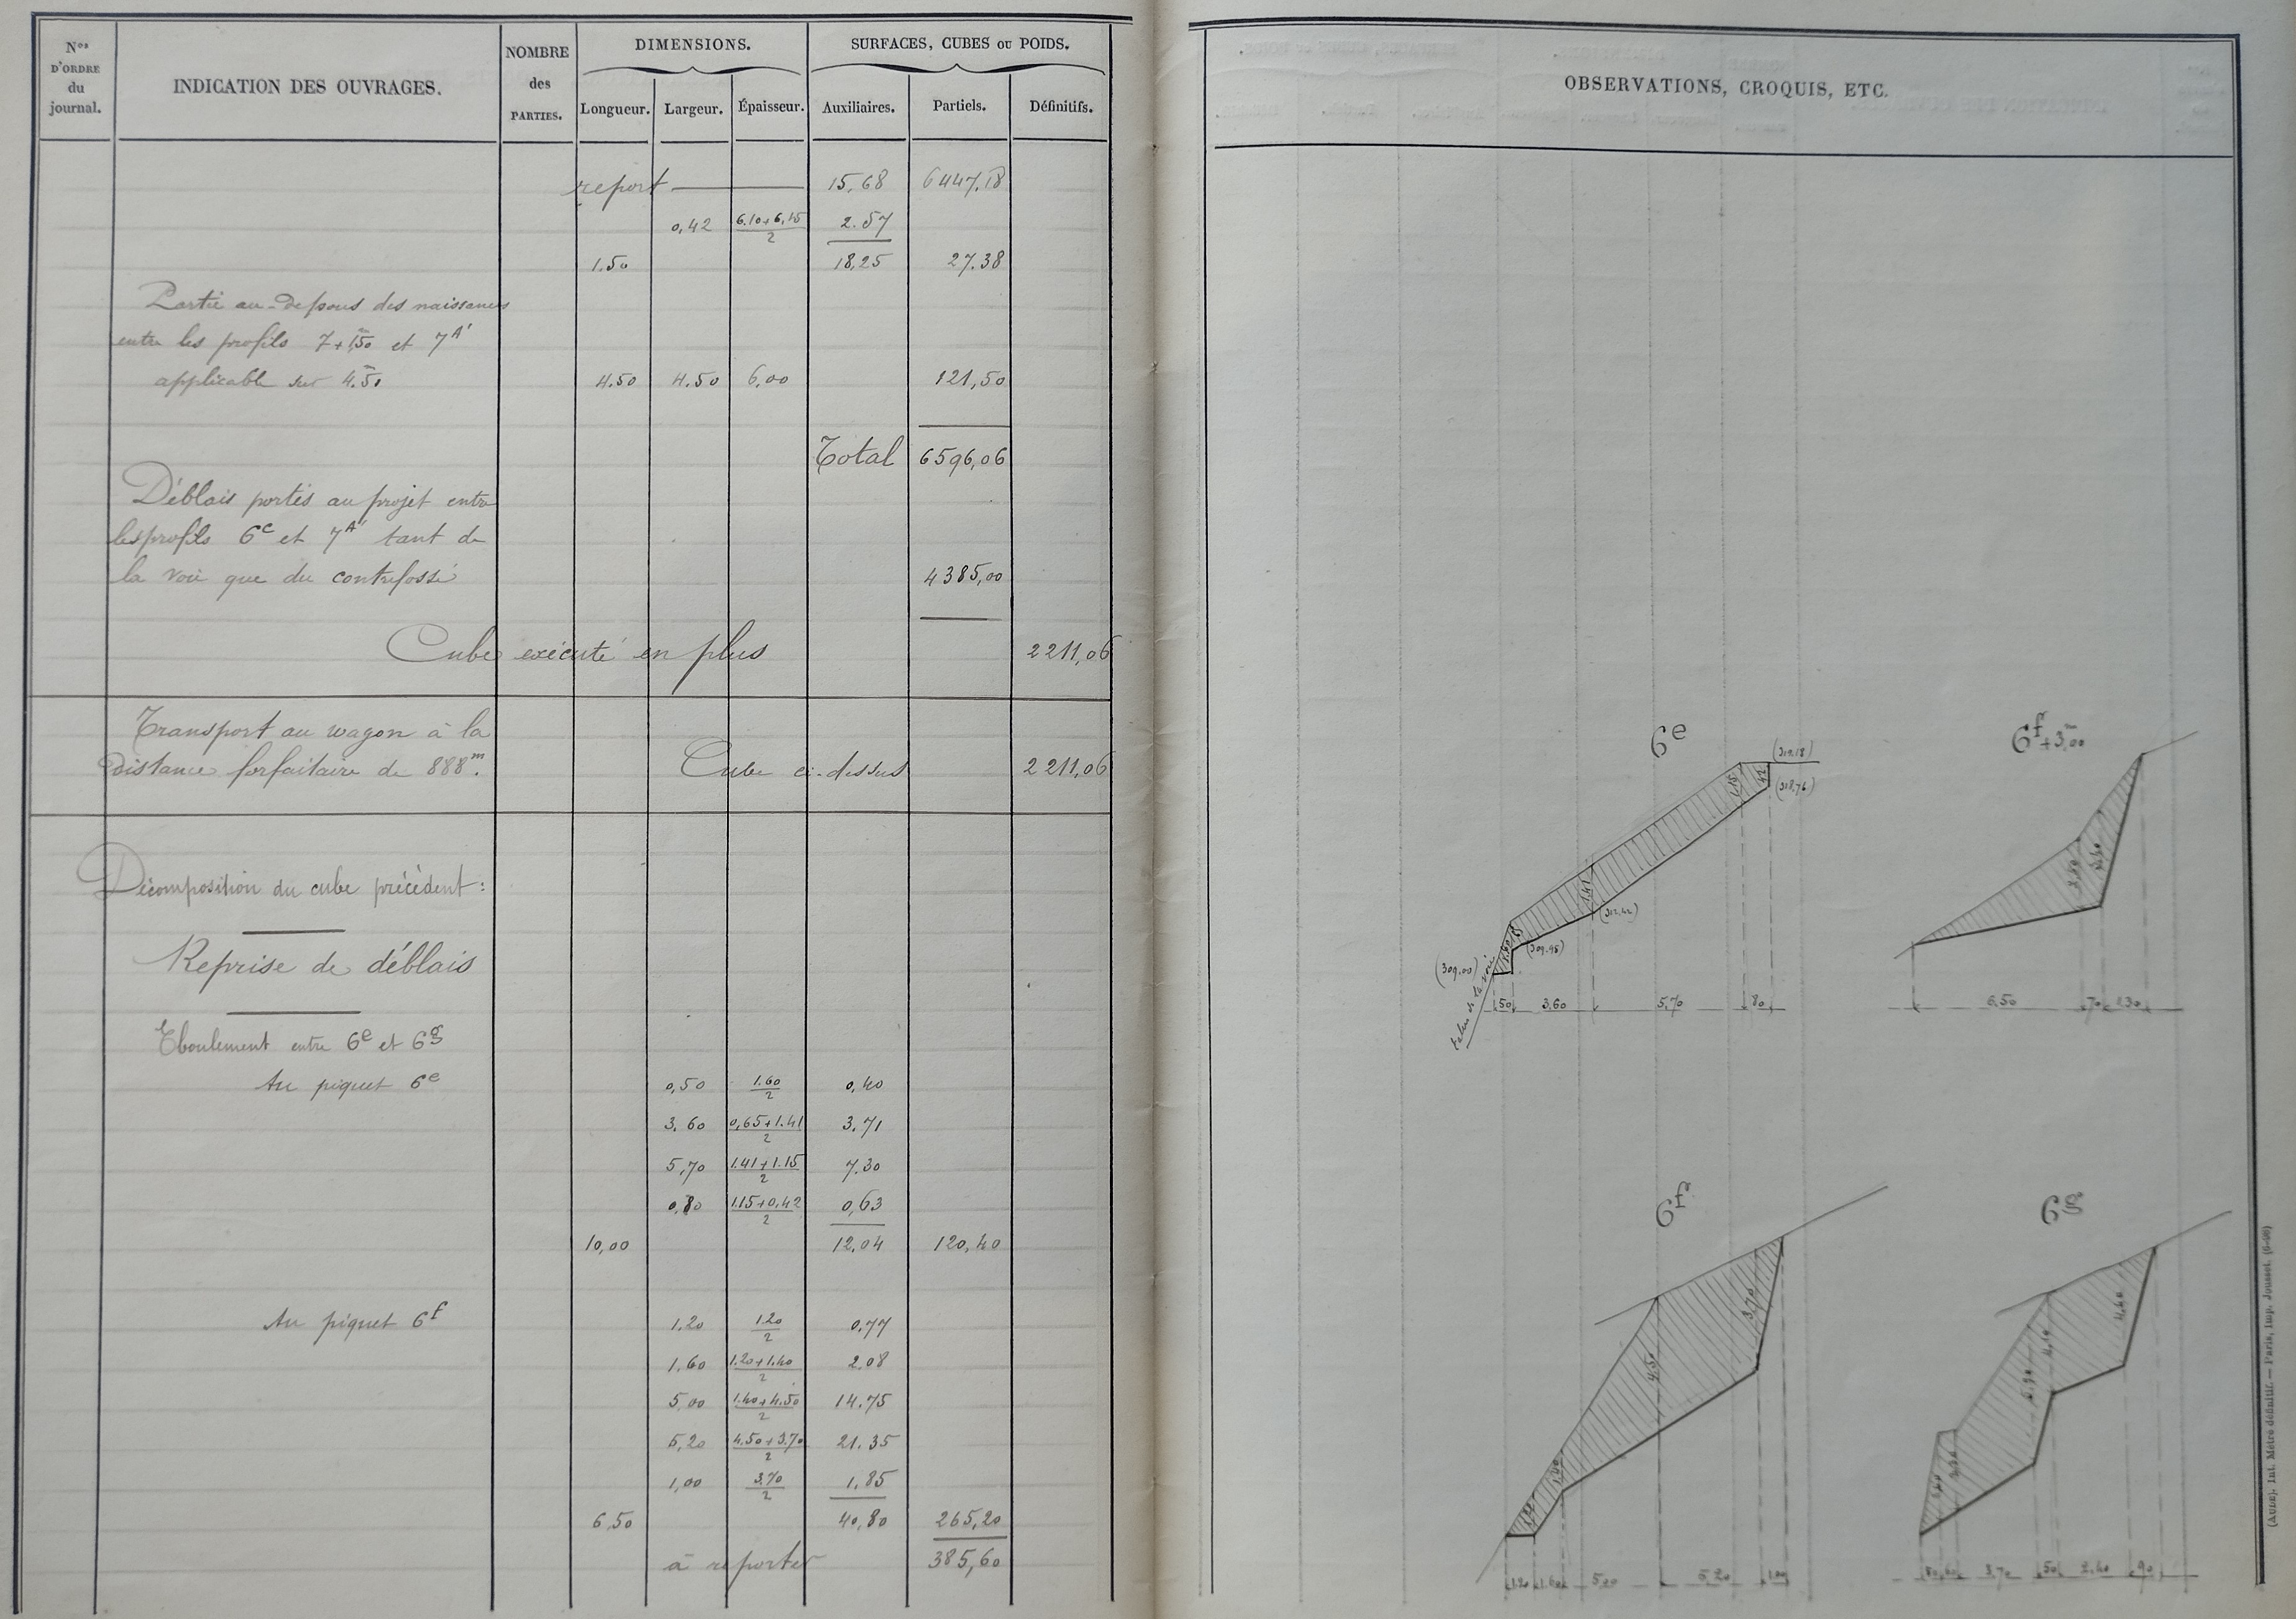 Nos D'ORDRE du journal.
INDICATION DES OUVRAGES.
NOMBRE des PARTIES.
DIMENSIONS.
SURFACES, CUBES ou POIDS.
Longueur. Largeur. Épaisseur. Auxiliaires. Partiels. Définitifs.
report 15,68 6447,18
0,42 6.10+6,15/2 2.57
1.50 18,25 27.38
Partie au-dessous des naissances
entre les profils 7+1m50 et 7A'
applicable sur 4m50 4.50 4.50 6,00 121,50
Total 6596,06
Déblais portés au projet entre
les profils 6e et 7A' tant de
la voie que du contrefossé 4385,00
Cube exécuté en plus 2211,06
Transport au wagon à la
distance forfaitaire de 888m. Cube ci-dessus 2211,06
Décomposition du cube précédent :
Reprise de déblais
Eboulement entre 6e et 6g
Au piquet 6e 0,50 1.60/2 0,40
3.60 0,65+1.41/2 3.71
5,70 1.41+1.15/2 7.30
0,80 1.15+0,42/2 0,63
10,00 12,04 120,40
Au piquet 6f 1.20 1.20/2 0.77
1.60 1.20+1.40/2 2.08
5,00 1.40+4.50/2 14.75
5,20 4.50+3.70/2 21.35
1,00 3.70/2 1.85
6,50 40,80 265,20
à reporter 385,60
OBSERVATIONS, CROQUIS, ETC.
6e
(319.18)
1.15 42
(318,76)
1.41
(312.42)
(309.45)
(309.00)
talus de la voie
50 3.60 5.70 80
6f+3m00
6.50 70 1.30
6f
3.70
4.50
1.20 1.60 5,00 5.20 1.00
6g
4.40
80 60 3.70 50 2.40 90
(Aude). Int. Métré définitif. — Paris, Imp. Jousset.